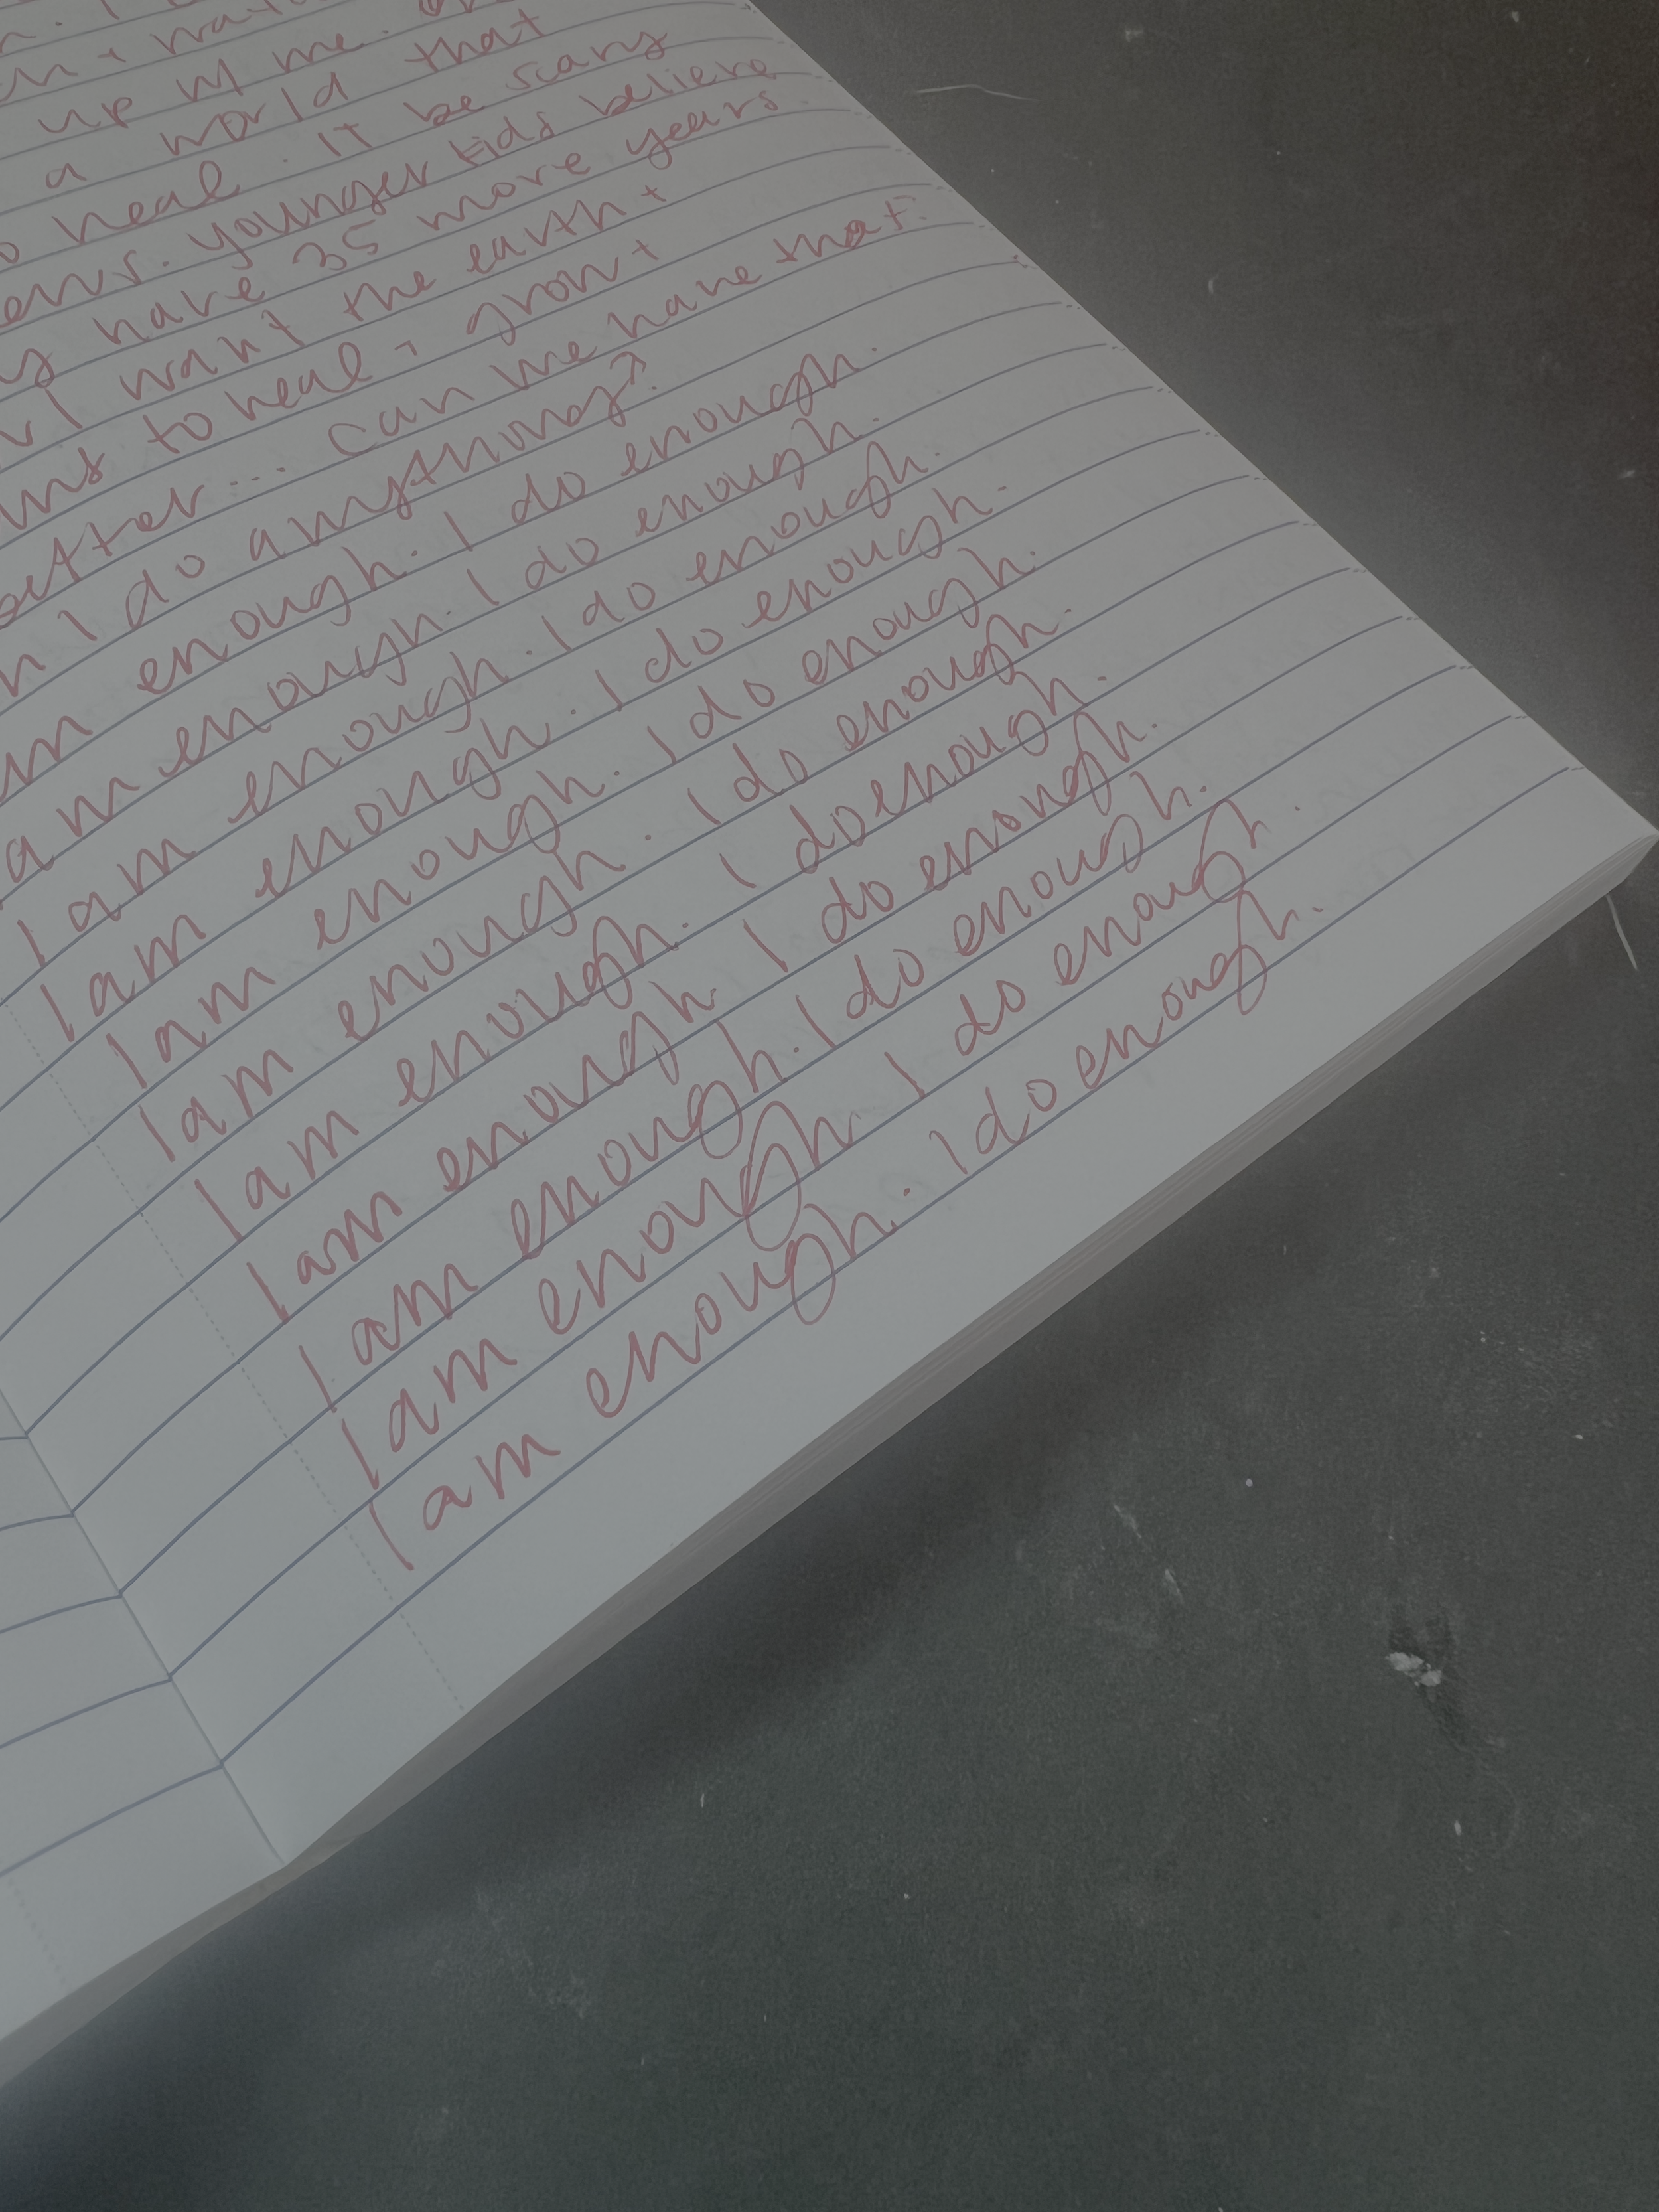 up w me.
a world that
heal. It be scary
younger kids believe
have 35 more years.
I want the earth +
to heal + grow +
... can we have that.
I do anything?
enough. I do enough.
am enough. I do enough.
I am enough. I do enough.
I am enough. I do enough.
I am enough. I do enough.
I am enough. I do enough.
I am enough. I do enough.
I am enough I do enough.
I am enough. I do enough.
I am enough I do enough.
I am enough. I do enough.